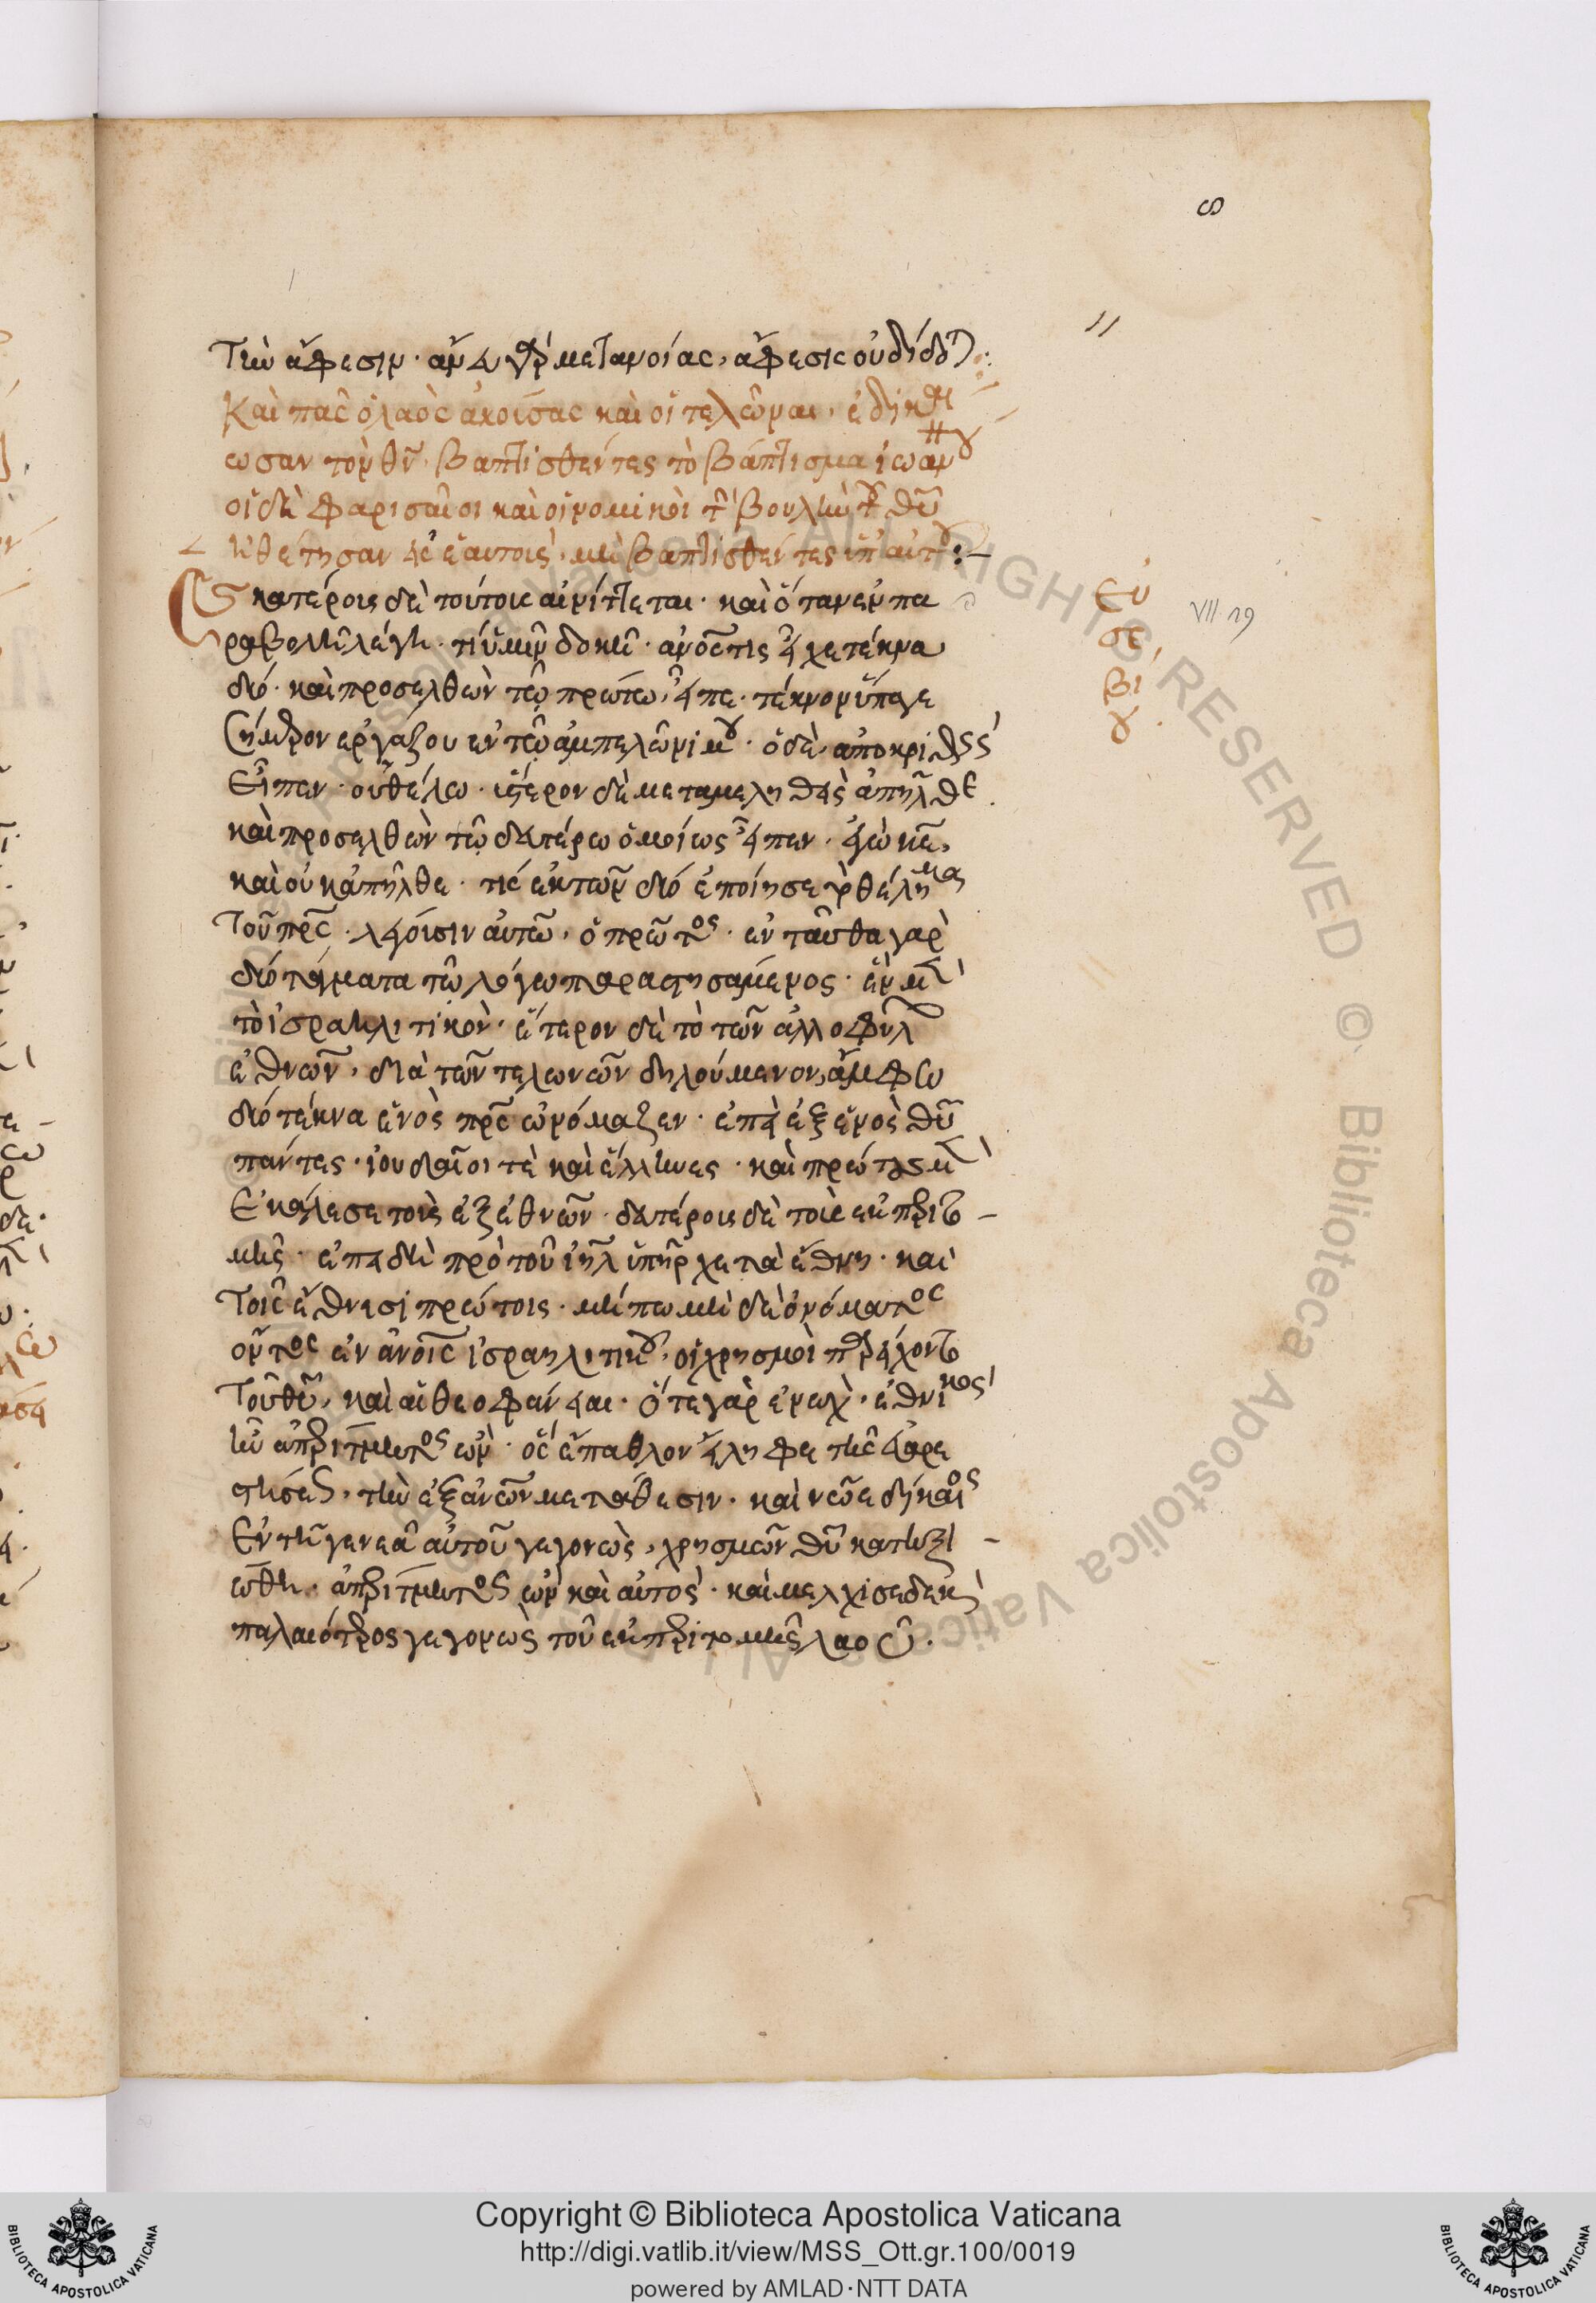 8
τὴν ἄφεσιν· ἄνευ γὰρ μετανοίας, ἄφεσις οὐ δίδοται:
Καὶ πᾶς ὁ λαὸς ἀκούσας καὶ οἱ τελῶναι, ἐδικαι
ωσαν τὸν θν̄· βαπτισθέντες τὸ βάπτισμα ἰωάννου
οἱ δὲ φαρισαῖοι καὶ οἱ νομικοὶ τὴν βουλὴν τοῦ θῡ
ἠθέτησαν εἰς ἑαυτοὺς, μὴ βαπτισθέντες ὑπ' αὐτοῦ:–
Εὐ
σε
βί
ου
VII 29
Εκατέροις δὲ τούτοις αἰνίττεται· καὶ ὅταν ἐν πα
ραβολῆ λέγη· τί ὑμῖν δοκεῖ· ἄνο̄ς τις εἶχε τέκνα
δύο· καὶ προσελθὼν τῶ πρώτω, εἶπε· τέκνον ὕπαγε
σήμερον ἐργάζου ἐν τῶ ἀμπελῶνί μου· ὁ δὲ, ἀποκριθεὶς
εἶπεν· οὐ θέλω· ὕστερον δὲ μεταμεληθεὶς ἀπῆλθε
καὶ προσελθὼν τῶ δευτέρω ὁμοίως εἶπεν· ἐγὼ κε̄,
καὶ οὐκ ἀπῆλθε· τίς ἐκ τῶν δύο ἐποίησε τὸ θέλημα
τοῦ πρ̄ς· λέγουσιν αὐτῶ, ὁ πρῶτος· ἐνταῦθα γὰρ
δύο τάγματα τῶ λόγω παραστησάμενος· ἓν μὲν
τὸ ἰσραηλιτικὸν· ἕτερον δὲ τὸ τῶν ἀλλοφύλων
ἐθνῶν, διὰ τῶν τελωνῶν δηλούμενον, ἄμφω
δύο τέκνα ἑνὸς πρ̄ς ὠνόμαζεν· ἐπεὶ ἐξ ἑνὸς θῡ
πάντες· ἰουδαῖοι τὲ καὶ ἕλληνες· καὶ πρώτους μὲν
ἐκάλεσε τοὺς ἐξ ἐθνῶν· δευτέρους δὲ τοὺς ἐκ περιτο–
μῆς· ἐπειδὴ πρὸ τοῦ ἰηλ̄ ὑπῆρχε τὰ ἔθνη· καὶ
τοῖς ἔθνεσι πρώτοις· μήπω μὴ δὲ ὀνόματος
ὄντος ἐν ἀνοις̄ ἰσραηλιτικοῦ, οἱ χρησμοὶ παρείχοντο
τοῦ θῡ, καὶ αἱ θεοφάνειαι· ὅτε γὰρ ἐνωχ̀· ἐθνικὸς
ἦν ἀπερίτμητος ὢν· ὃς ἔπαθλον εἴληφε τῆς εὐαρε
στήσεως, τὴν ἐξ ἀνων̄ μετάθεσιν· καὶ νῶε δίκαιος
ἐν τῆ γενεᾶ αὐτοῦ γεγονὼς, χρησμῶν θῡ κατηξι–
ώθη· ἀπερίτμητος ὢν καὶ αὐτὸς· καὶ μελχισεδὲκ
παλαιότερος γεγονὼς τοῦ ἐκ περιτομῆς λαοῦ.
Copyright © Biblioteca Apostolica Vaticana
http://digi.vatlib.it/view/MSS_Ott.gr.100/0019
powered by AMLAD·NTT DATA